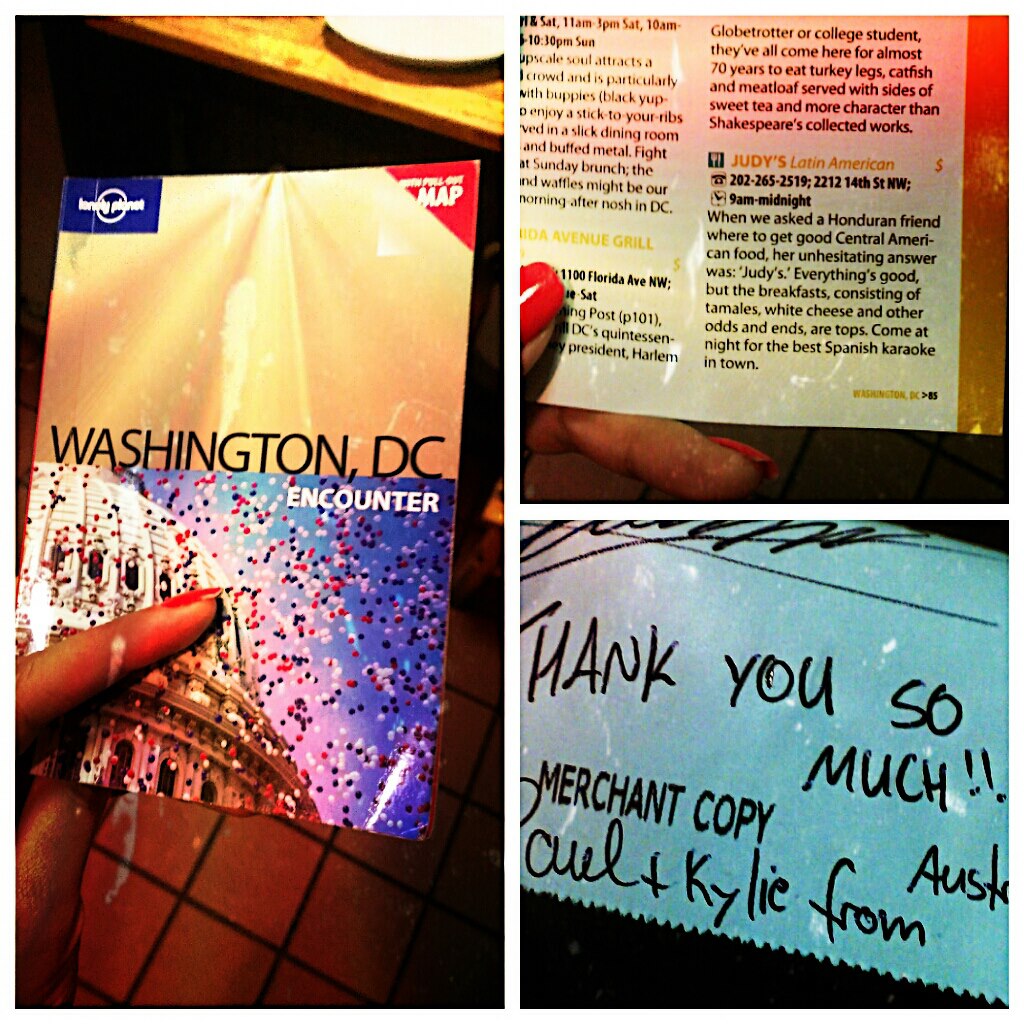 lonely planet
WITH PULL-OUT
MAP
WASHINGTON, DC
ENCOUNTER
& Sat, 11am-3pm Sat, 10am-
-10:30pm Sun
upscale soul attracts a
crowd and is particularly
with buppies (black yup-
enjoy a stick-to-your-ribs
ved in a slick dining room
and buffed metal. Fight
at Sunday brunch; the
nd waffles might be our
morning-after nosh in DC.
IDA AVENUE GRILL
$
1100 Florida Ave NW;
ue-Sat
ning Post (p101),
ill DC's quintessen-
ey president, Harlem
Globetrotter or college student,
they've all come here for almost
70 years to eat turkey legs, catfish
and meatloaf served with sides of
sweet tea and more character than
Shakespeare's collected works.
JUDY'S Latin American $
202-265-2519; 2212 14th St NW;
9am-midnight
When we asked a Honduran friend
where to get good Central Ameri-
can food, her unhesitating answer
was: 'Judy's.' Everything's good,
but the breakfasts, consisting of
tamales, white cheese and other
odds and ends, are tops. Come at
night for the best Spanish karaoke
in town.
WASHINGTON, DC >85
THANK YOU SO
MUCH!!
MERCHANT COPY
+ Kylie from Austr